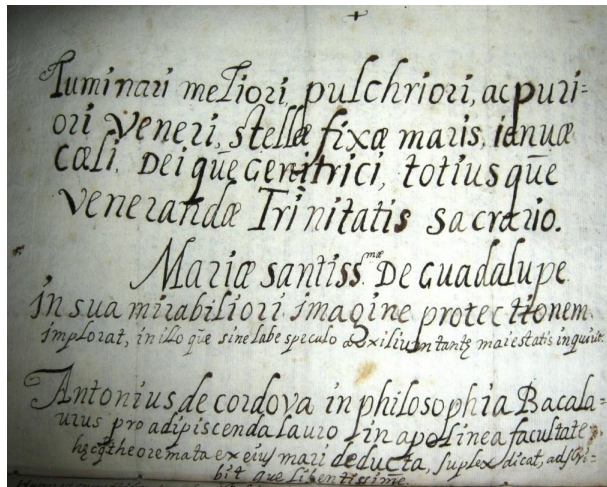 Luminari meliori, pulchriori, ac puri=
ori Veneri, stellæ fixæ maris, ianuæ
Cæli, Dei que Genitrici, totius quē
Venerandæ Trinitatis sacrario.
Mariæ santiss.mæ De Guadalupe
in sua mirabiliori imagine protectionem
implorat, in illo quē sine labe speculo auxilium tantę maiestatis inquirit.
Antonius de cordova in philosophia Bacala=
urius pro adipiscenda lauro in apolinea facultate
theoremata ex eius mari deducta, suplex dicat, adscri-
bit que libentissime.